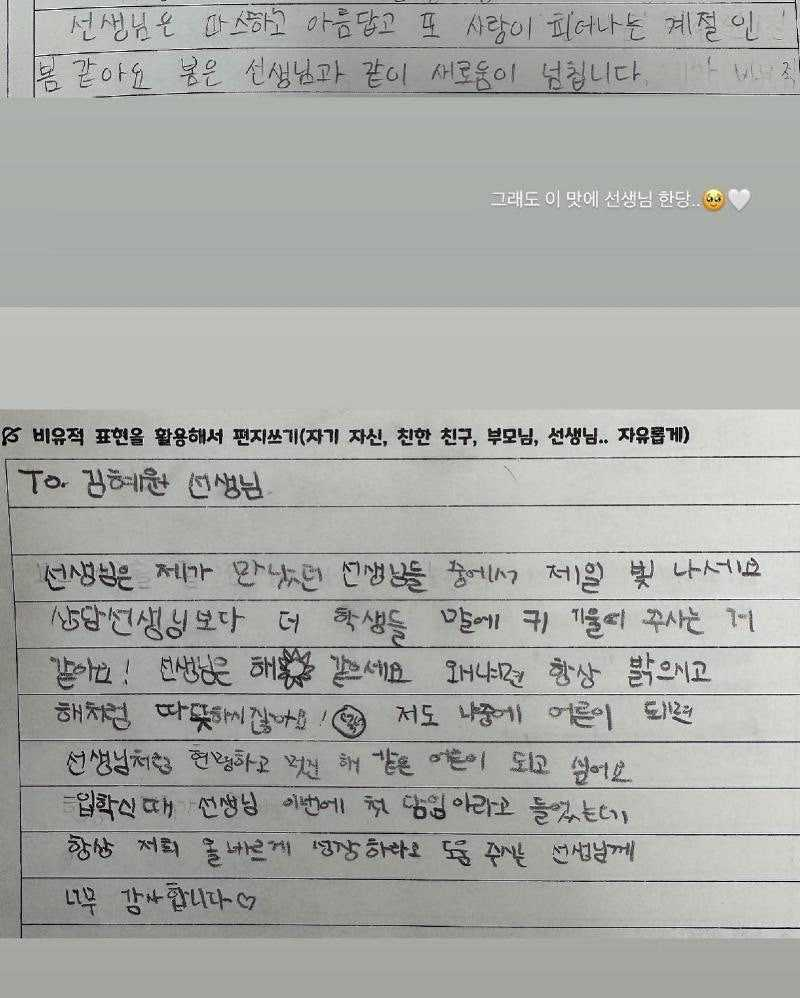 선생님은 따스하고 아름답고 또 사랑이 피어나는 계절인
봄 같아요 봄은 선생님과 같이 새로움이 넘칩니다.
그래도 이 맛에 선생님 한당..🥹🤍
비유적 표현을 활용해서 편지쓰기(자기 자신, 친한 친구, 부모님, 선생님.. 자유롭게)
To. 김혜원 선생님
선생님은 제가 만났던 선생님들 중에서 제일 빛 나세요
상담선생님보다 더 학생들 말에 귀 기울여 주시는 거
같아요! 선생님은 해 같으세요 왜냐면 항상 밝으시고
해처럼 따뜻하시잖아요! 저도 나중에 어른이 되면
선생님처럼 현명하고 멋진 해 같은 어른이 되고 싶어요
입학식때 선생님 이번에 첫 담임이라고 들었는데
항상 저희 올바르게 성장하라고 도움 주시는 선생님께
너무 감사합니다♡